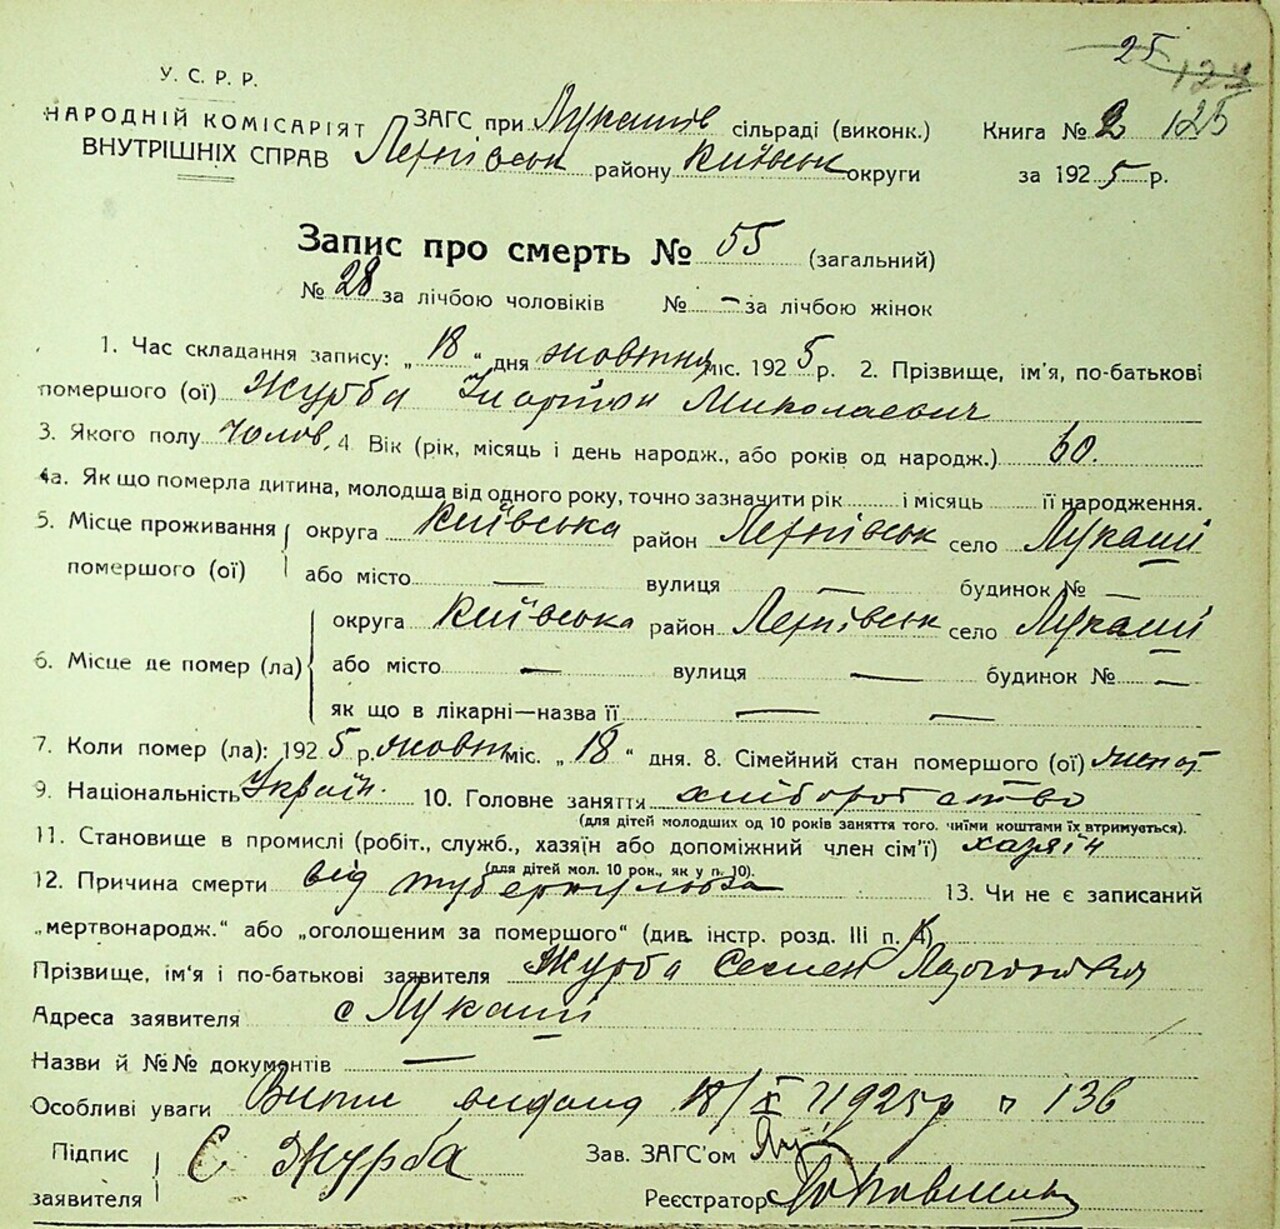 25
124
У. С. Р. Р.
НАРОДНІЙ КОМІСАРІЯТ ЗАГС при Лукашів сільраді (виконк.) Книга № 2 125
ВНУТРІШНІХ СПРАВ району Київськ округи за 1925 р.
Запис про смерть № 55 (загальний)
№ 28 за лічбою чоловіків № — за лічбою жінок
1. Час складання запису: „18“ дня жовтня міс. 1925 р. 2. Прізвище, ім'я, по-батькові
помершого (ої) Журба Миколаевич
3. Якого полу Чолов. 4. Вік (рік, місяць і день народж., або років од народж.) 60.
4а. Як що померла дитина, молодша від одного року, точно зазначити рік і місяць її народження.
5. Місце проживання округа Київська район село Лукаші
помершого (ої) або місто — вулиця — будинок № —
округа Київська район село Лукаші
6. Місце де помер (ла) або місто — вулиця — будинок № —
як що в лікарні—назва її — —
7. Коли помер (ла): 1925 р. жовт міс. „18“ дня. 8. Сімейний стан помершого (ої)
9. Національність Україн. 10. Головне заняття хліборобство
(для дітей молодших од 10 років заняття того. чиїми коштами їх втримується).
11. Становище в промислі (робіт., служб., хазяїн або допоміжний член сім'ї) хазяїн
(для дітей мол. 10 рок., як у п. 10).
12. Причина смерти від туберкульоза 13. Чи не є записаний
„мертвонародж.“ або „оголошеним за помершого“ (див. інстр. розд. III п. 4)
Прізвище, ім'я і по-батькові заявителя Журба Семен
Адреса заявителя с Лукаші
Назви й №№ документів —
Особливі уваги видано 18/X 1925р 136
Підпис Зав. ЗАГС'ом
заявителя С Журба Реєстратор